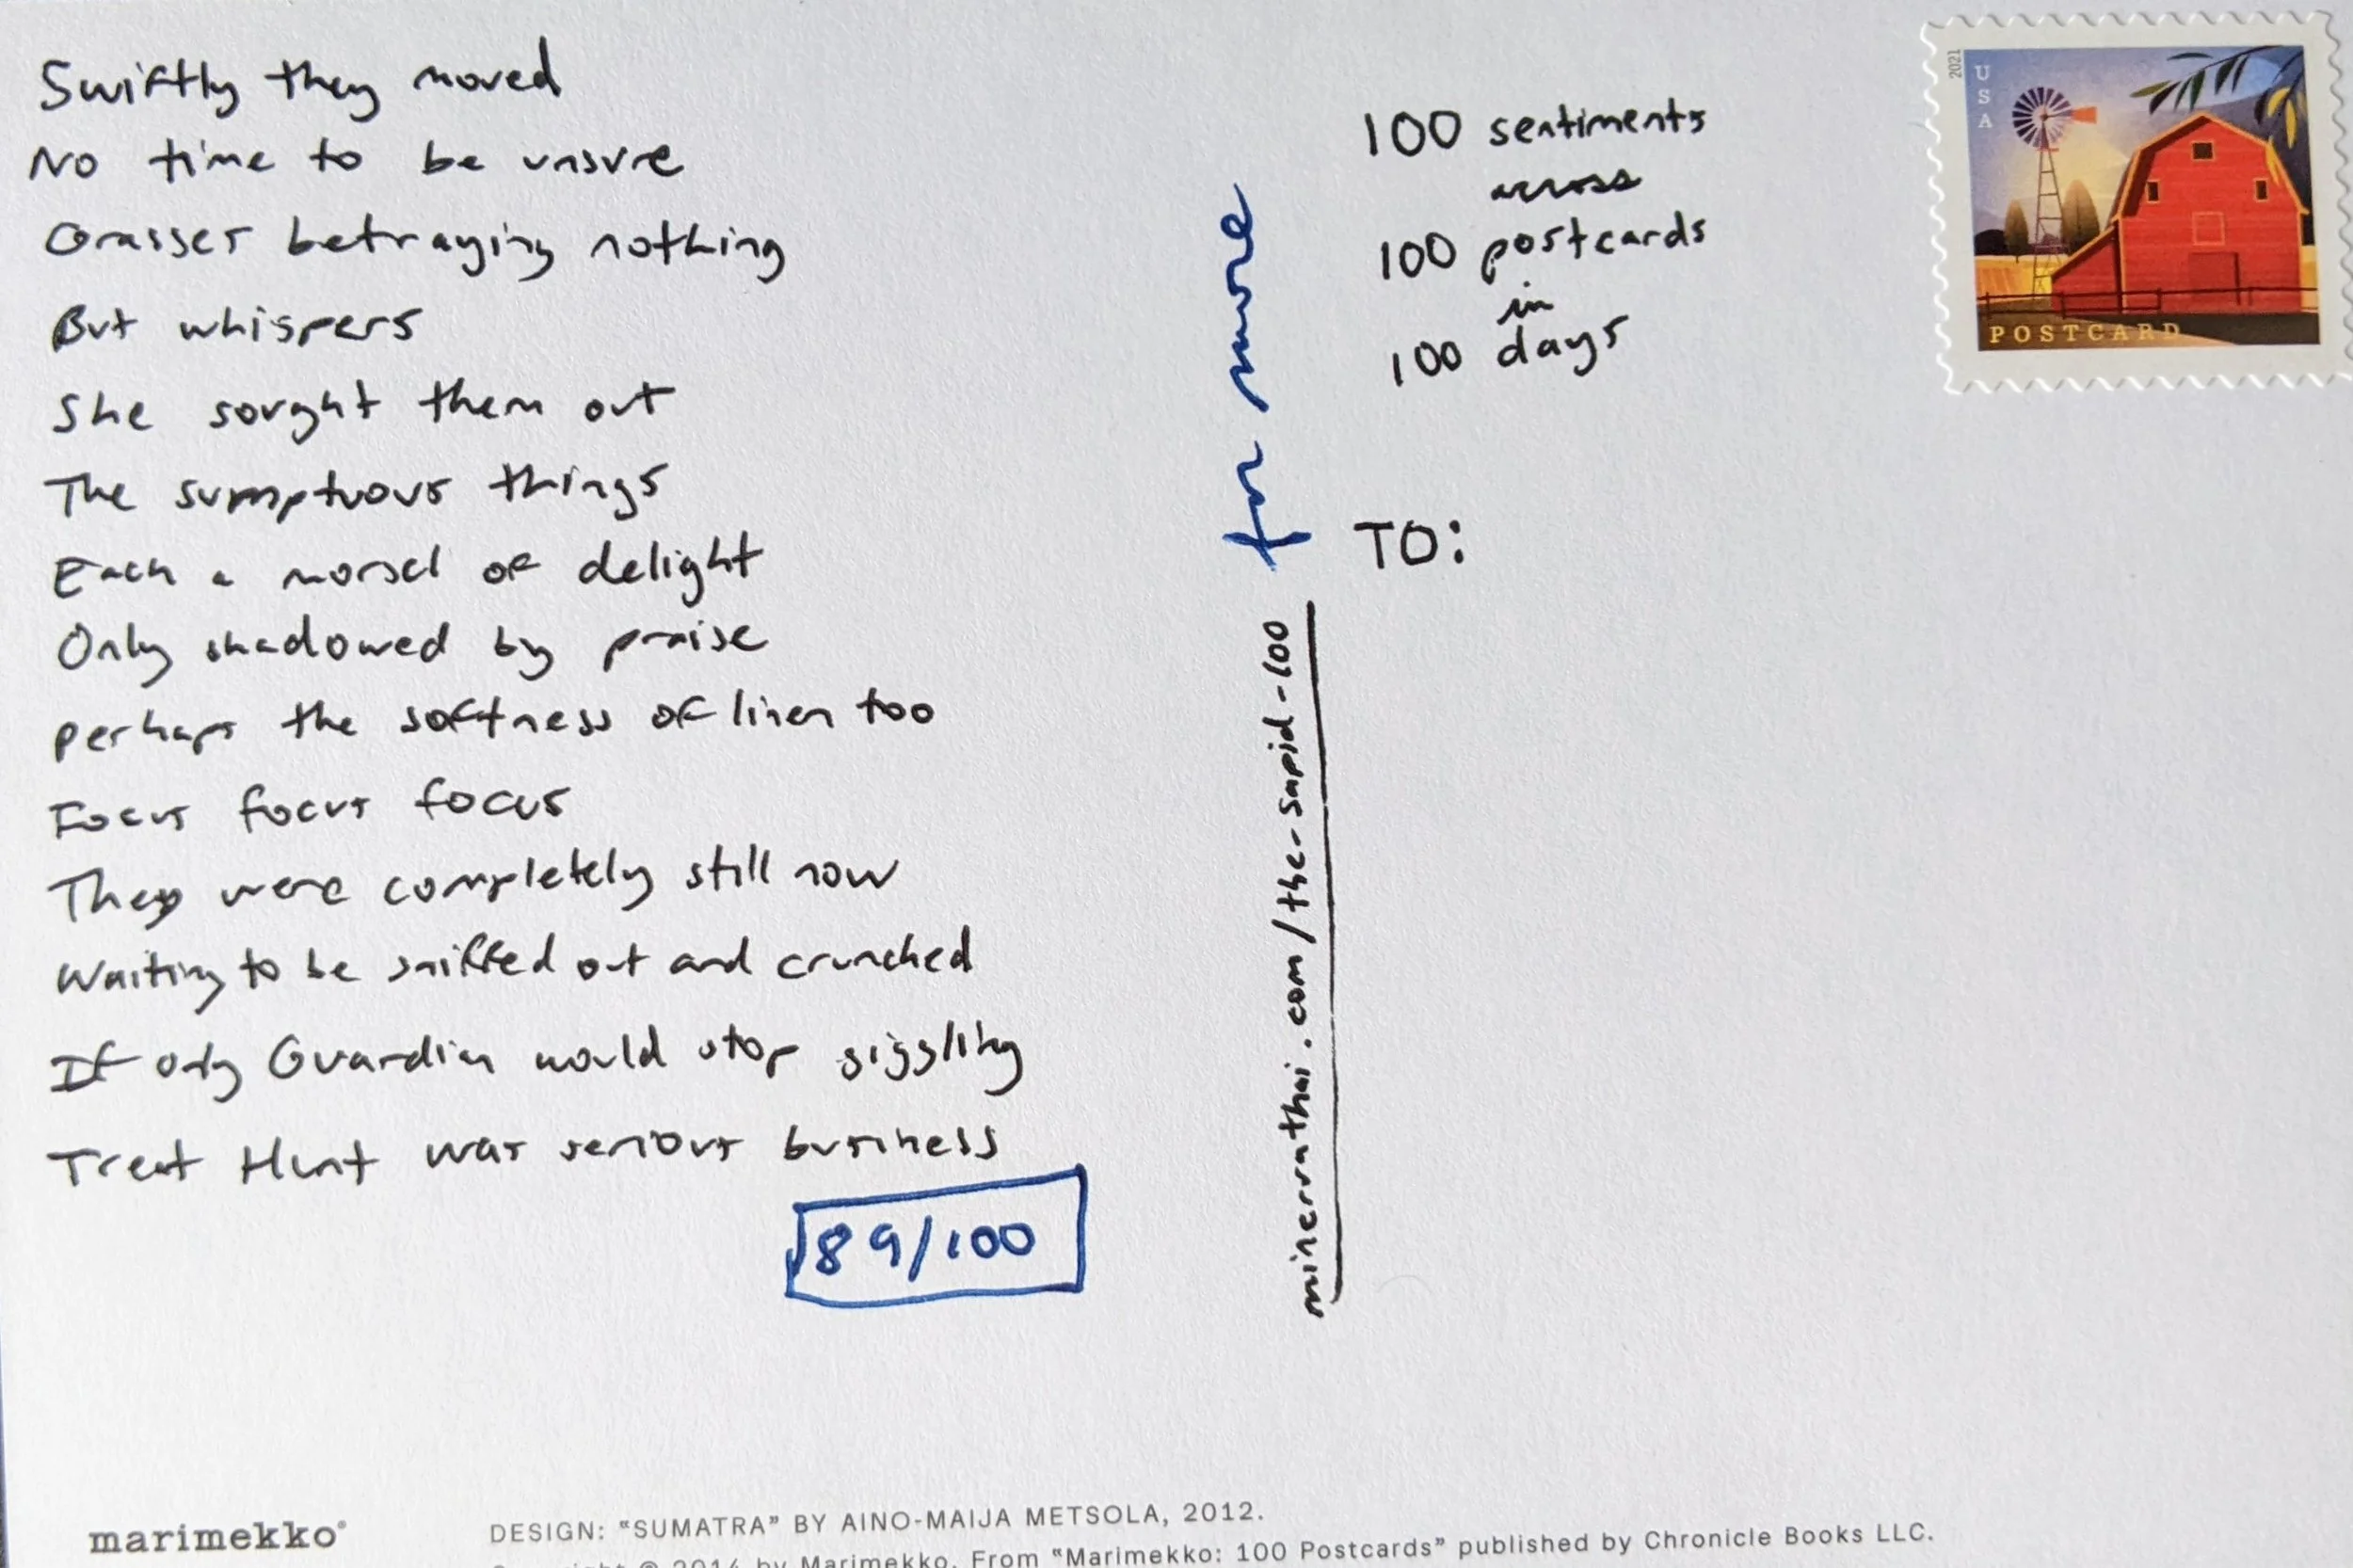 Swiftly they moved
No time to be unsure
Grasses betraying nothing
But whispers
She sought them out
The sumptuous things
Each a morsel of delight
Only shadowed by praise
perhaps the softness of linen too
Focus focus focus
They were completely still now
Waiting to be sniffed out and crunched
If only Guardian would stop giggling
Treat Hunt was serious business
89/100
for more
minervathai.com/the-sapid-100
100 sentiments
across
100 postcards
in
100 days
TO:
2021
USA
POSTCARD
marimekko®
DESIGN: "SUMATRA" BY AINO-MAIJA METSOLA, 2012.
Copyright © 2014 by Marimekko. From "Marimekko: 100 Postcards" published by Chronicle Books LLC.